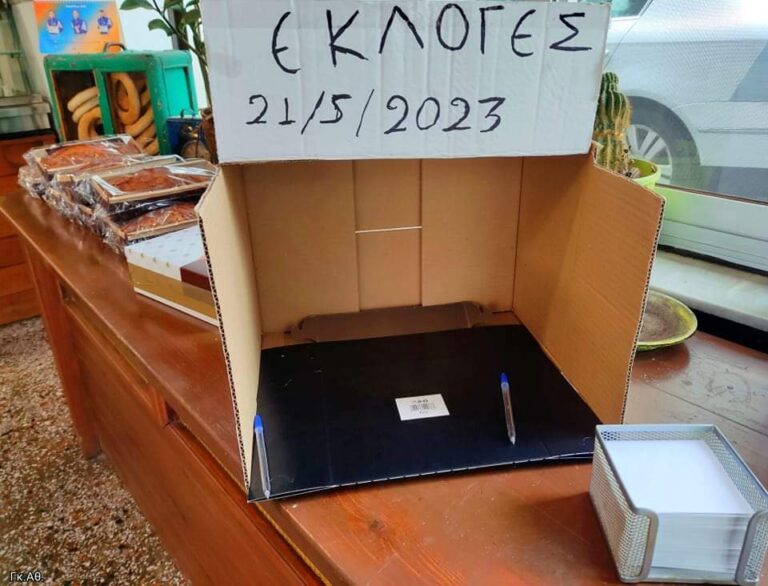 ΕΚΛΟΓΕΣ
21/5/2023
Γκ.Αθ.